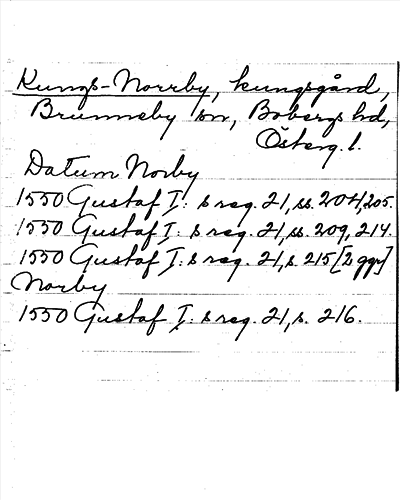 Kungs-Norrby, kungsgård,
Brunneby sn, Bobergs hd,
Österg. l.
Datum Norby
1550 Gustaf I: s reg. 21, ss. 204, 205.
1550 Gustaf I: s reg. 21, ss. 209, 214.
1550 Gustaf I: s reg. 21, s. 215 [2 ggr]
Norby
1550 Gustaf I: s reg. 21, s. 216.